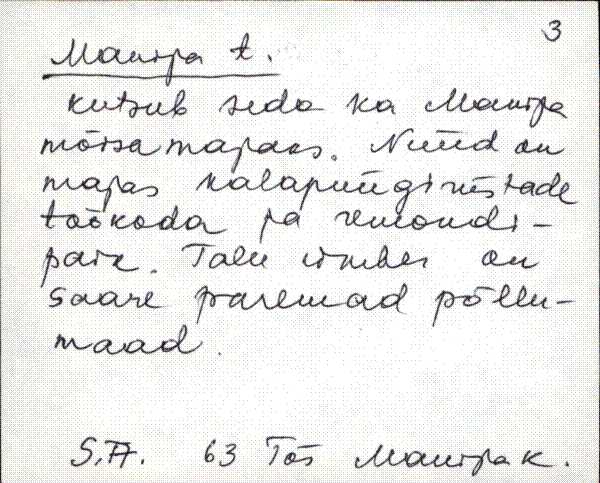 3
Manija t.
kutsub seda ka Manija
mõisamajaks. Nüüd on
majas kalapüügiriistade
töökoda ja remondi-
paik. Talu ümber on
saare paremad põllu-
maad.
S.A. 63 Tõs Manija k.